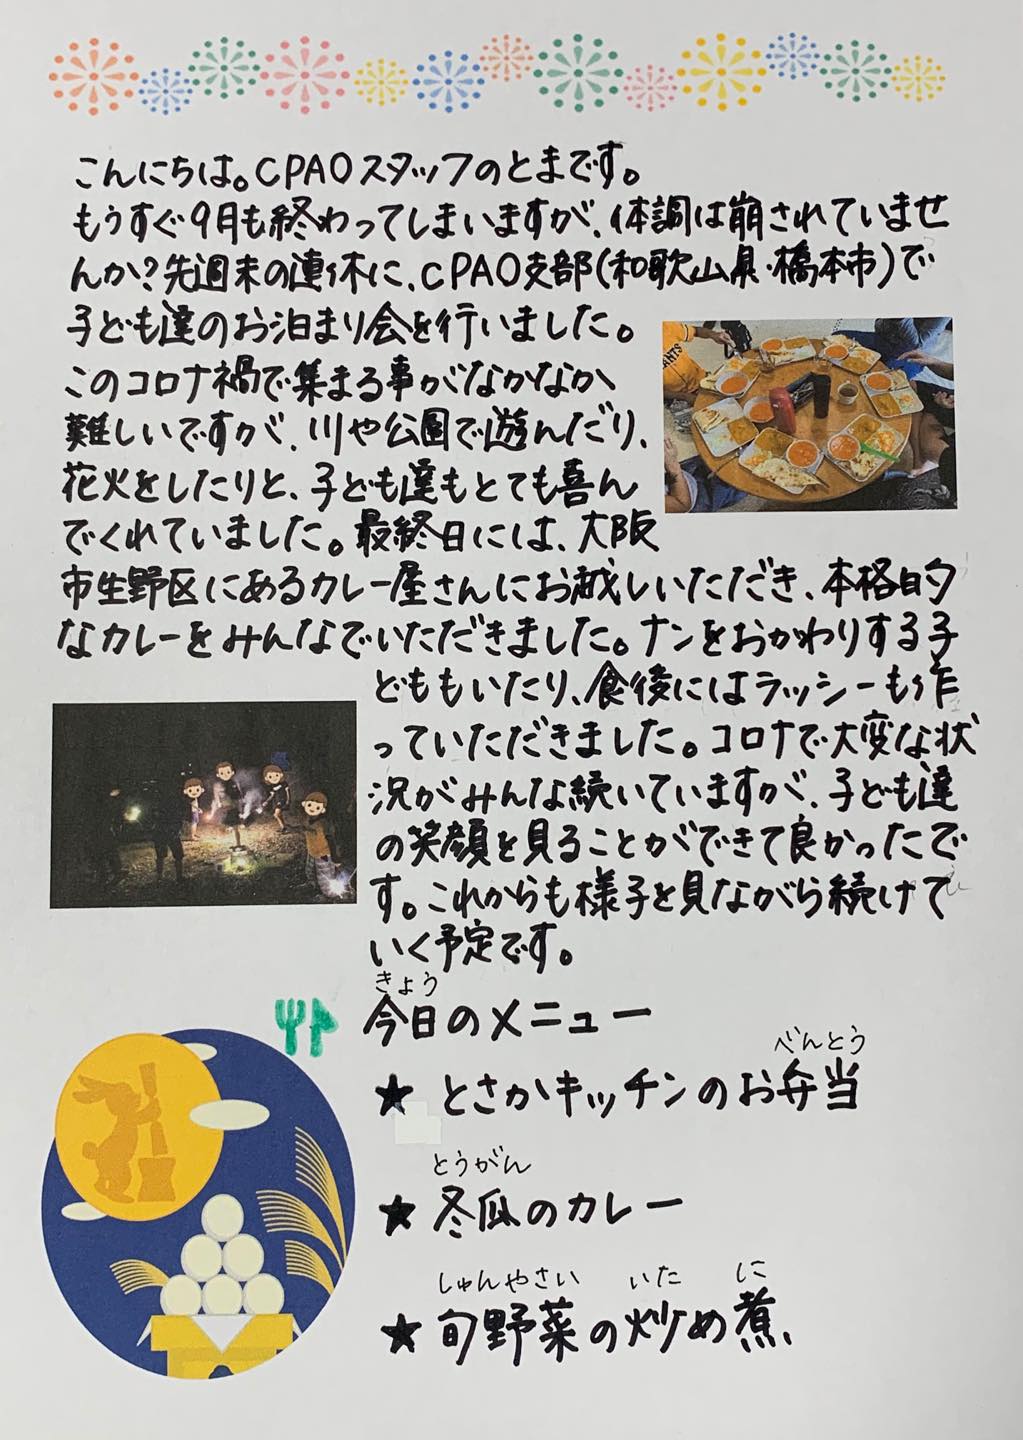 こんにちは。CPAOスタッフのとまです。
もうすぐ9月も終わってしまいますが、体調は崩されていませ
んか？先週末の連休に、CPAO支部(和歌山県・橋本市)で
子ども達のお泊まり会を行いました。
このコロナ禍で集まる事がなかなか
難しいですが、川や公園で遊んだり、
花火をしたりと、子ども達もとても喜ん
でくれていました。最終日には、大阪
市生野区にあるカレー屋さんにお越しいただき、本格的
なカレーをみんなでいただきました。ナンをおかわりする子
どももいたり、食後にはラッシーも作
っていただきました。コロナで大変な状
況がみんな続いていますが、子ども達
の笑顔を見ることができて良かったで
す。これからも様子を見ながら続けて
いく予定です。
きょう
今日のメニュー
べんとう
★ とさかキッチンのお弁当
とうがん
★ 冬瓜のカレー
しゅんやさい いた に
★ 旬野菜の炒め煮